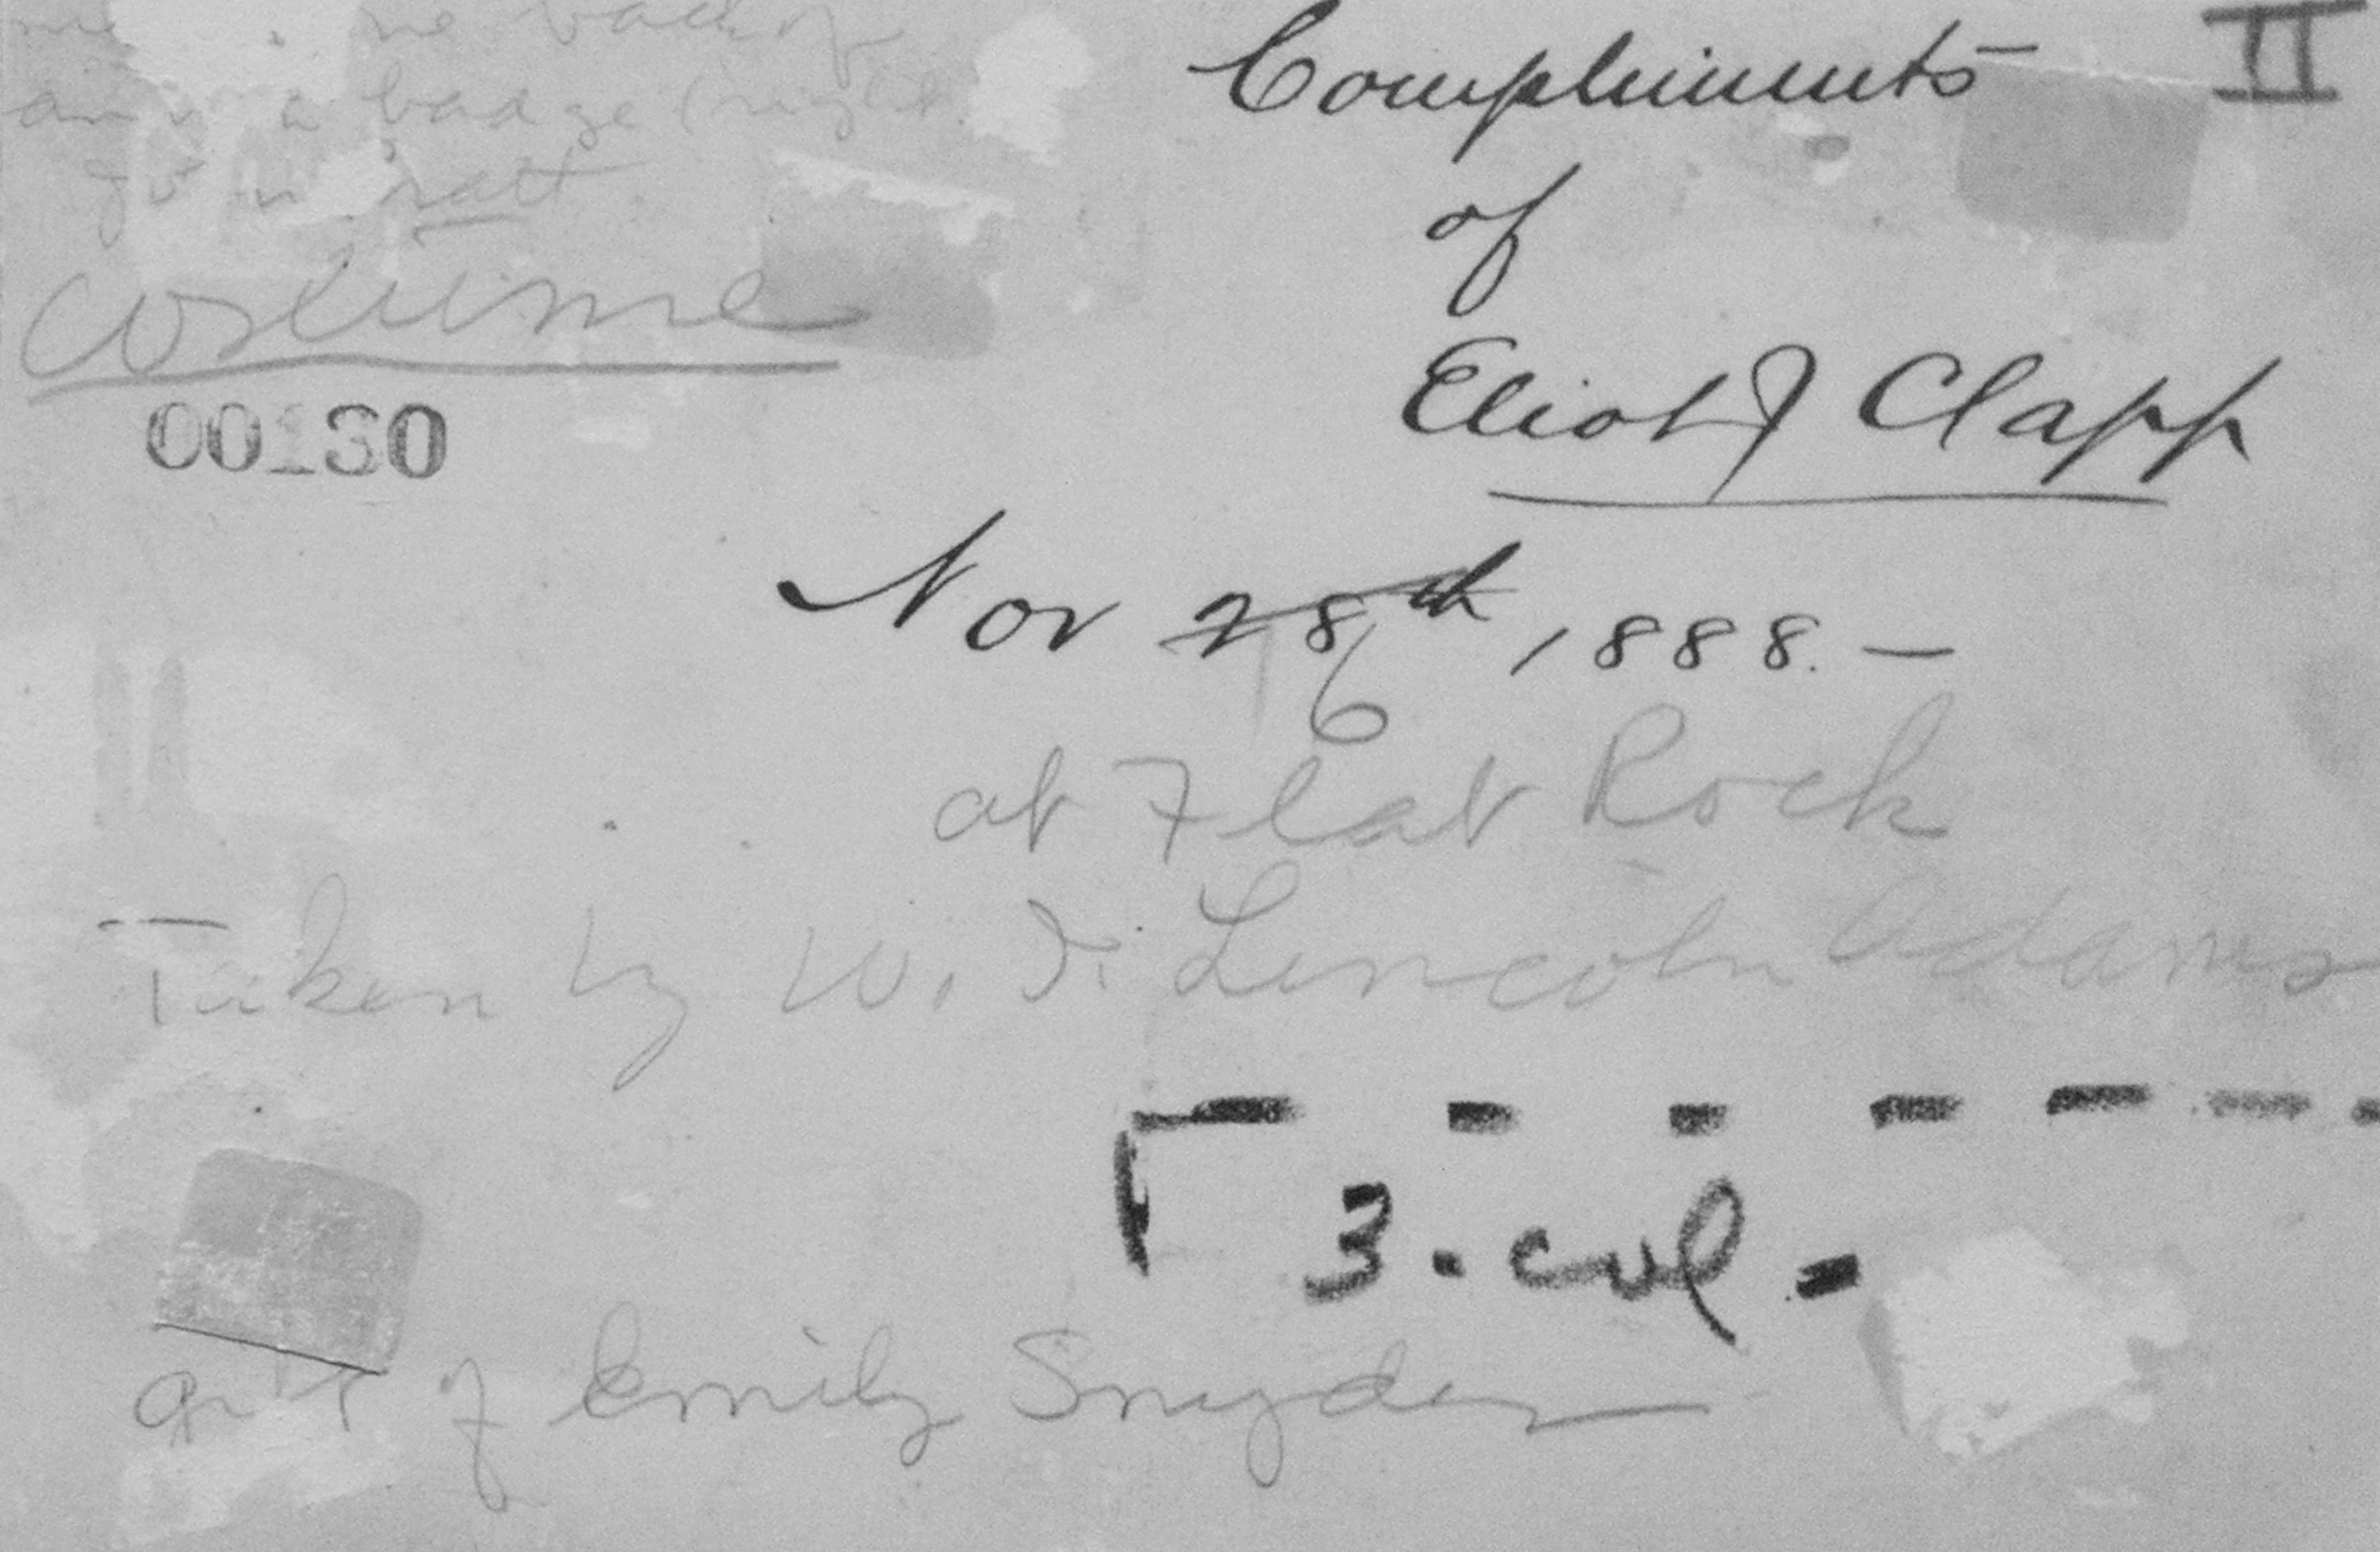 back of
a badge (right
hat
costume
00130
Compliments II
of
Eliot J Clapp
Nov 28th, 1888. —
16
at Flat Rock
Taken by W. I. Lincoln Adams
3. col -
gift of Emily Snyder